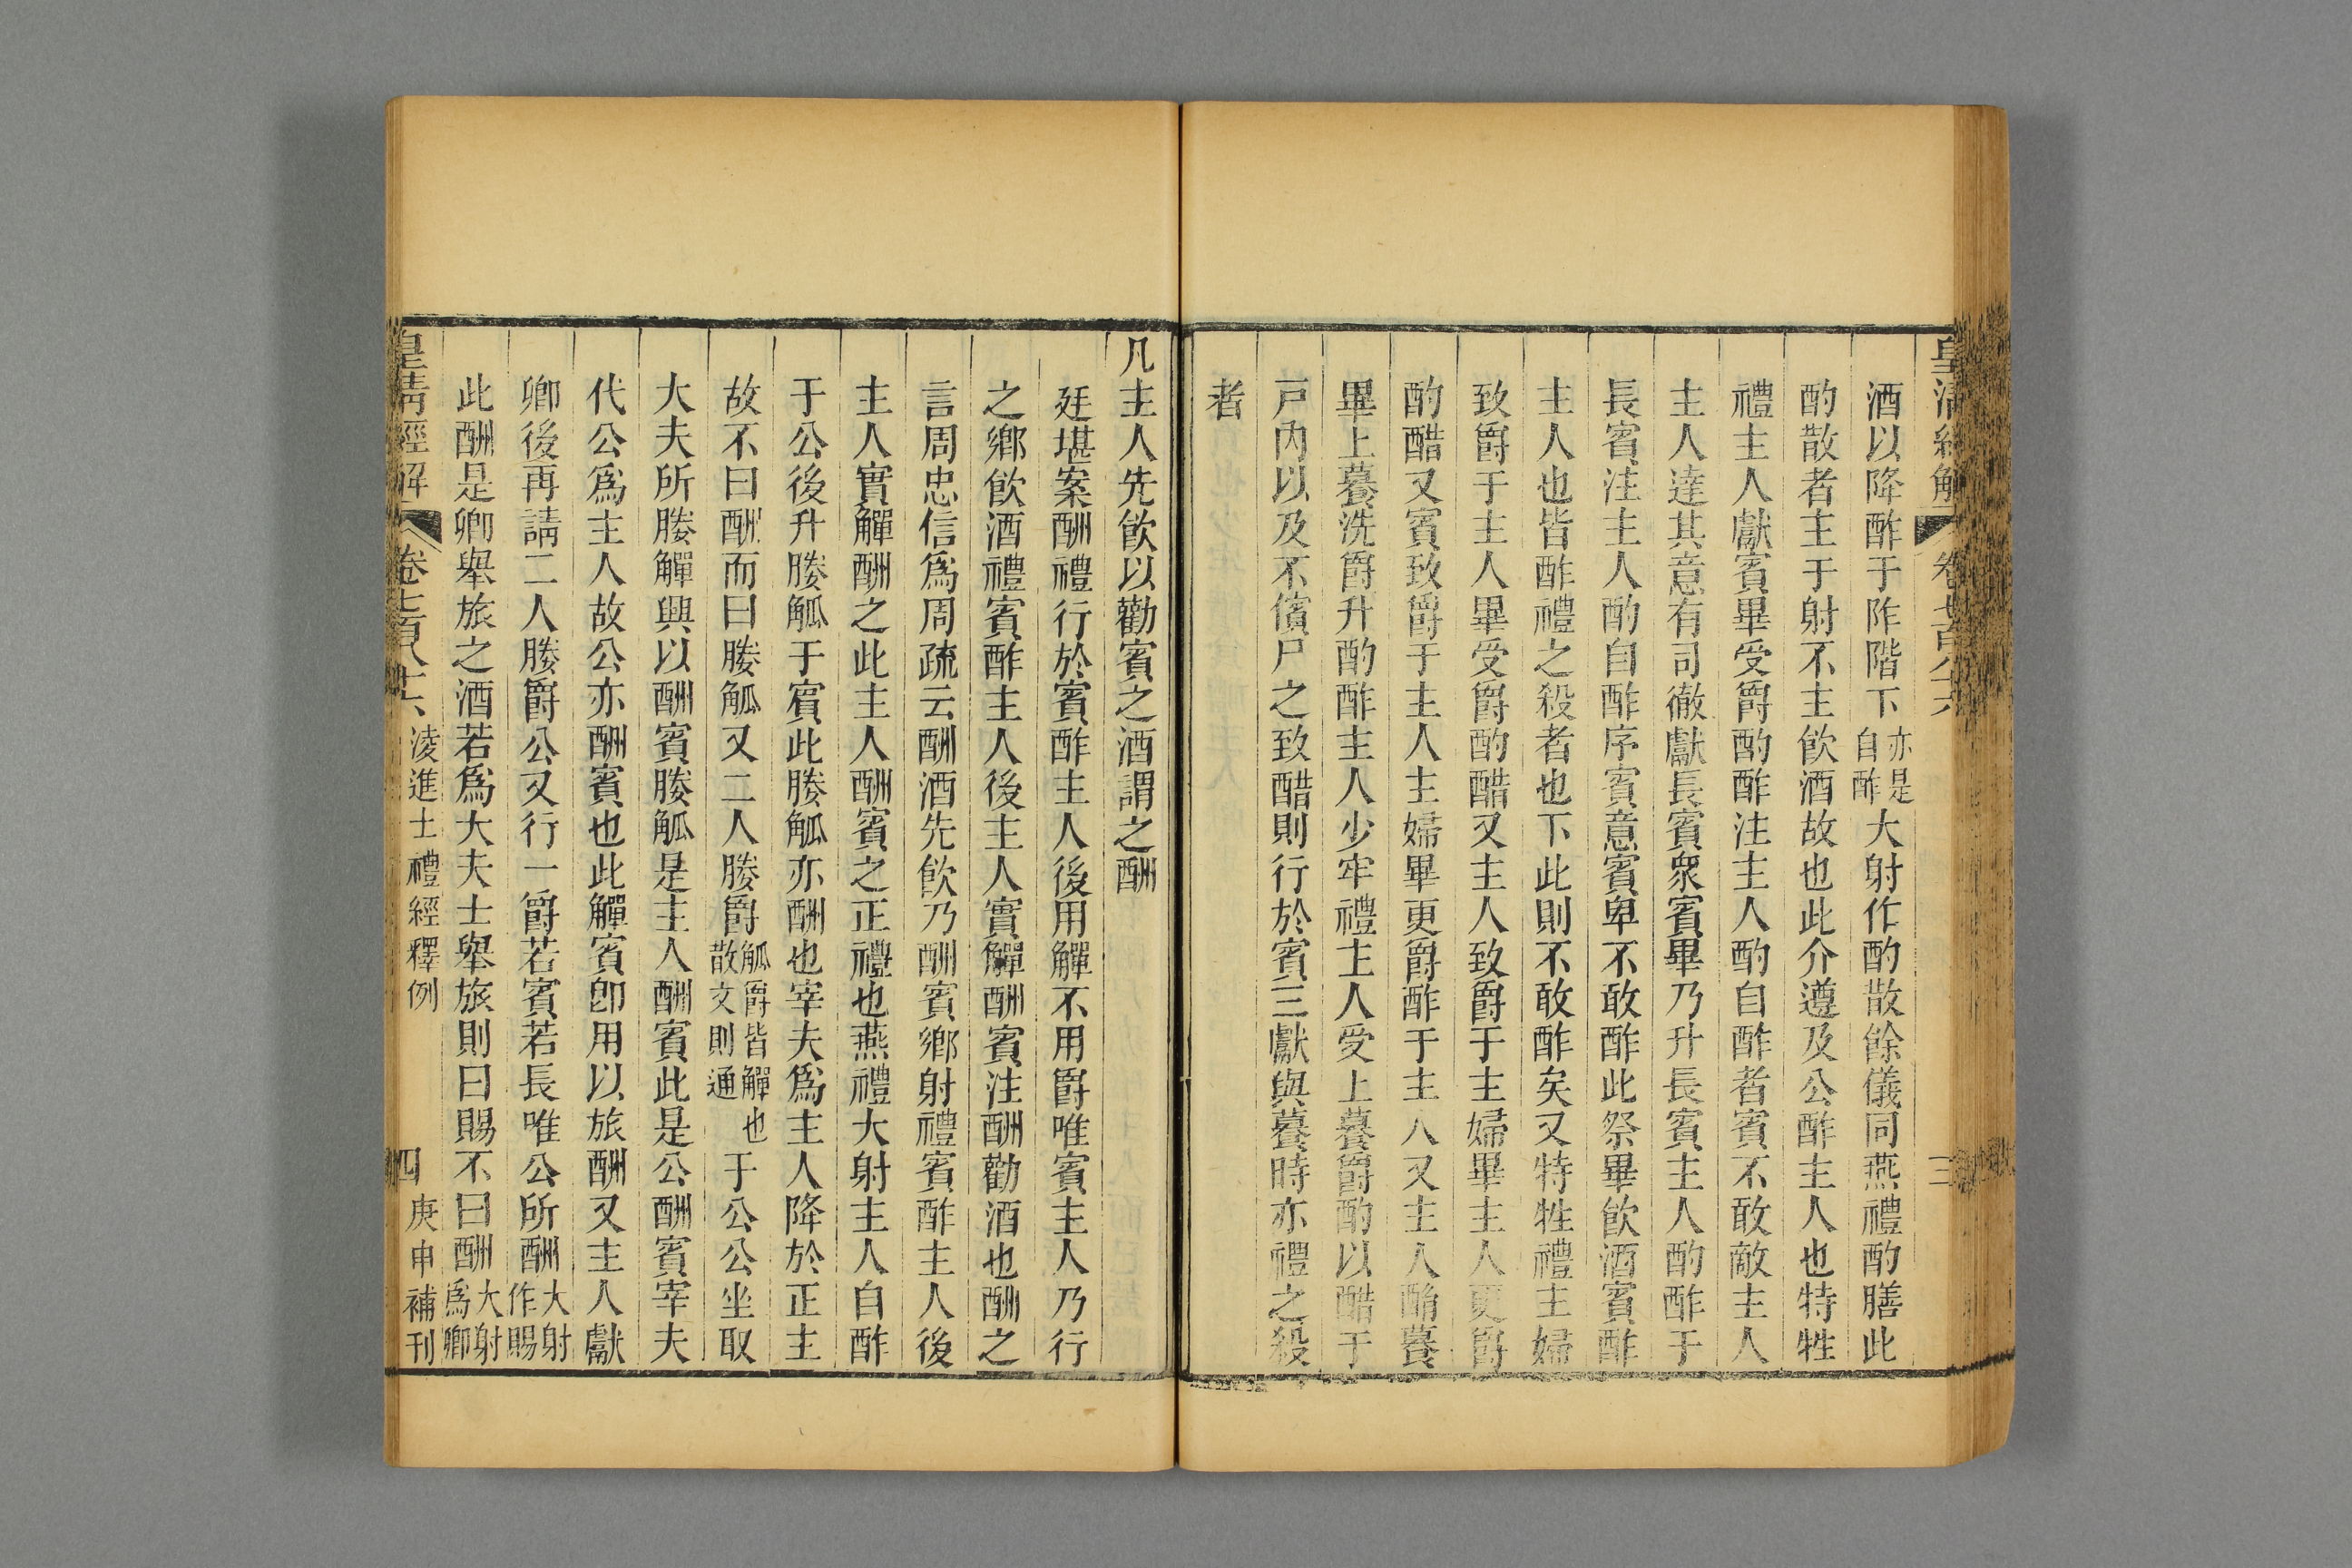 皇清經解 卷七百八十六 三
酒以降酢于阼階下亦是自酢大射作酌散餘儀同燕禮酌膳此
酌散者主于射不主飲酒故也此介遵及公酢主人也特牲
禮主人獻賓畢受爵酌酢注主人酌自酢者賓不敢敵主人
主人達其意有司徹獻長賓衆賓畢乃升長賓主人酌酢于
長賓注主人酌自酢序賓意賓卑不敢酢此祭畢飲酒賓酢
主人也皆酢禮之殺者也下此則不敢酢矣又特牲禮主婦
致爵于主人畢受爵酌醋又主人致爵于主婦畢主人更爵
酌醋又賓致爵于主人主婦畢更爵酢于主人又主人酳養
畢上養洗爵升酌酢主人少牢禮主人受上養爵酌以醋于
戸內以及不儐尸之致醋則行於賓三獻與養時亦禮之殺
者
凡主人先飲以勸賓之酒謂之酬
廷堪案酬禮行於賓酢主人後用觶不用爵唯賓主人乃行
之鄉飲酒禮賓酢主人後主人實觶酬賓注酬勸酒也酬之
言周忠信爲周疏云酬酒先飲乃酬賓鄉射禮賓酢主人後
主人實觶酬之此主人酬賓之正禮也燕禮大射主人自酢
于公後升媵觚于賓此媵觚亦酬也宰夫爲主人降於正主
故不曰酬而曰媵觚又二人媵爵觚爵皆觶也散文則通于公公坐取
大夫所媵觶興以酬賓媵觚是主人酬賓此是公酬賓宰夫
代公爲主人故公亦酬賓也此觶賓卽用以旅酬又主人獻
卿後再請二人媵爵公又行一爵若賓若長唯公所酬大射作賜
此酬是卿舉旅之酒若爲大夫士舉旅則曰賜不曰酬大射爲卿
皇清經解 卷七百八十六 淩進士禮經釋例 四 庚申補刊